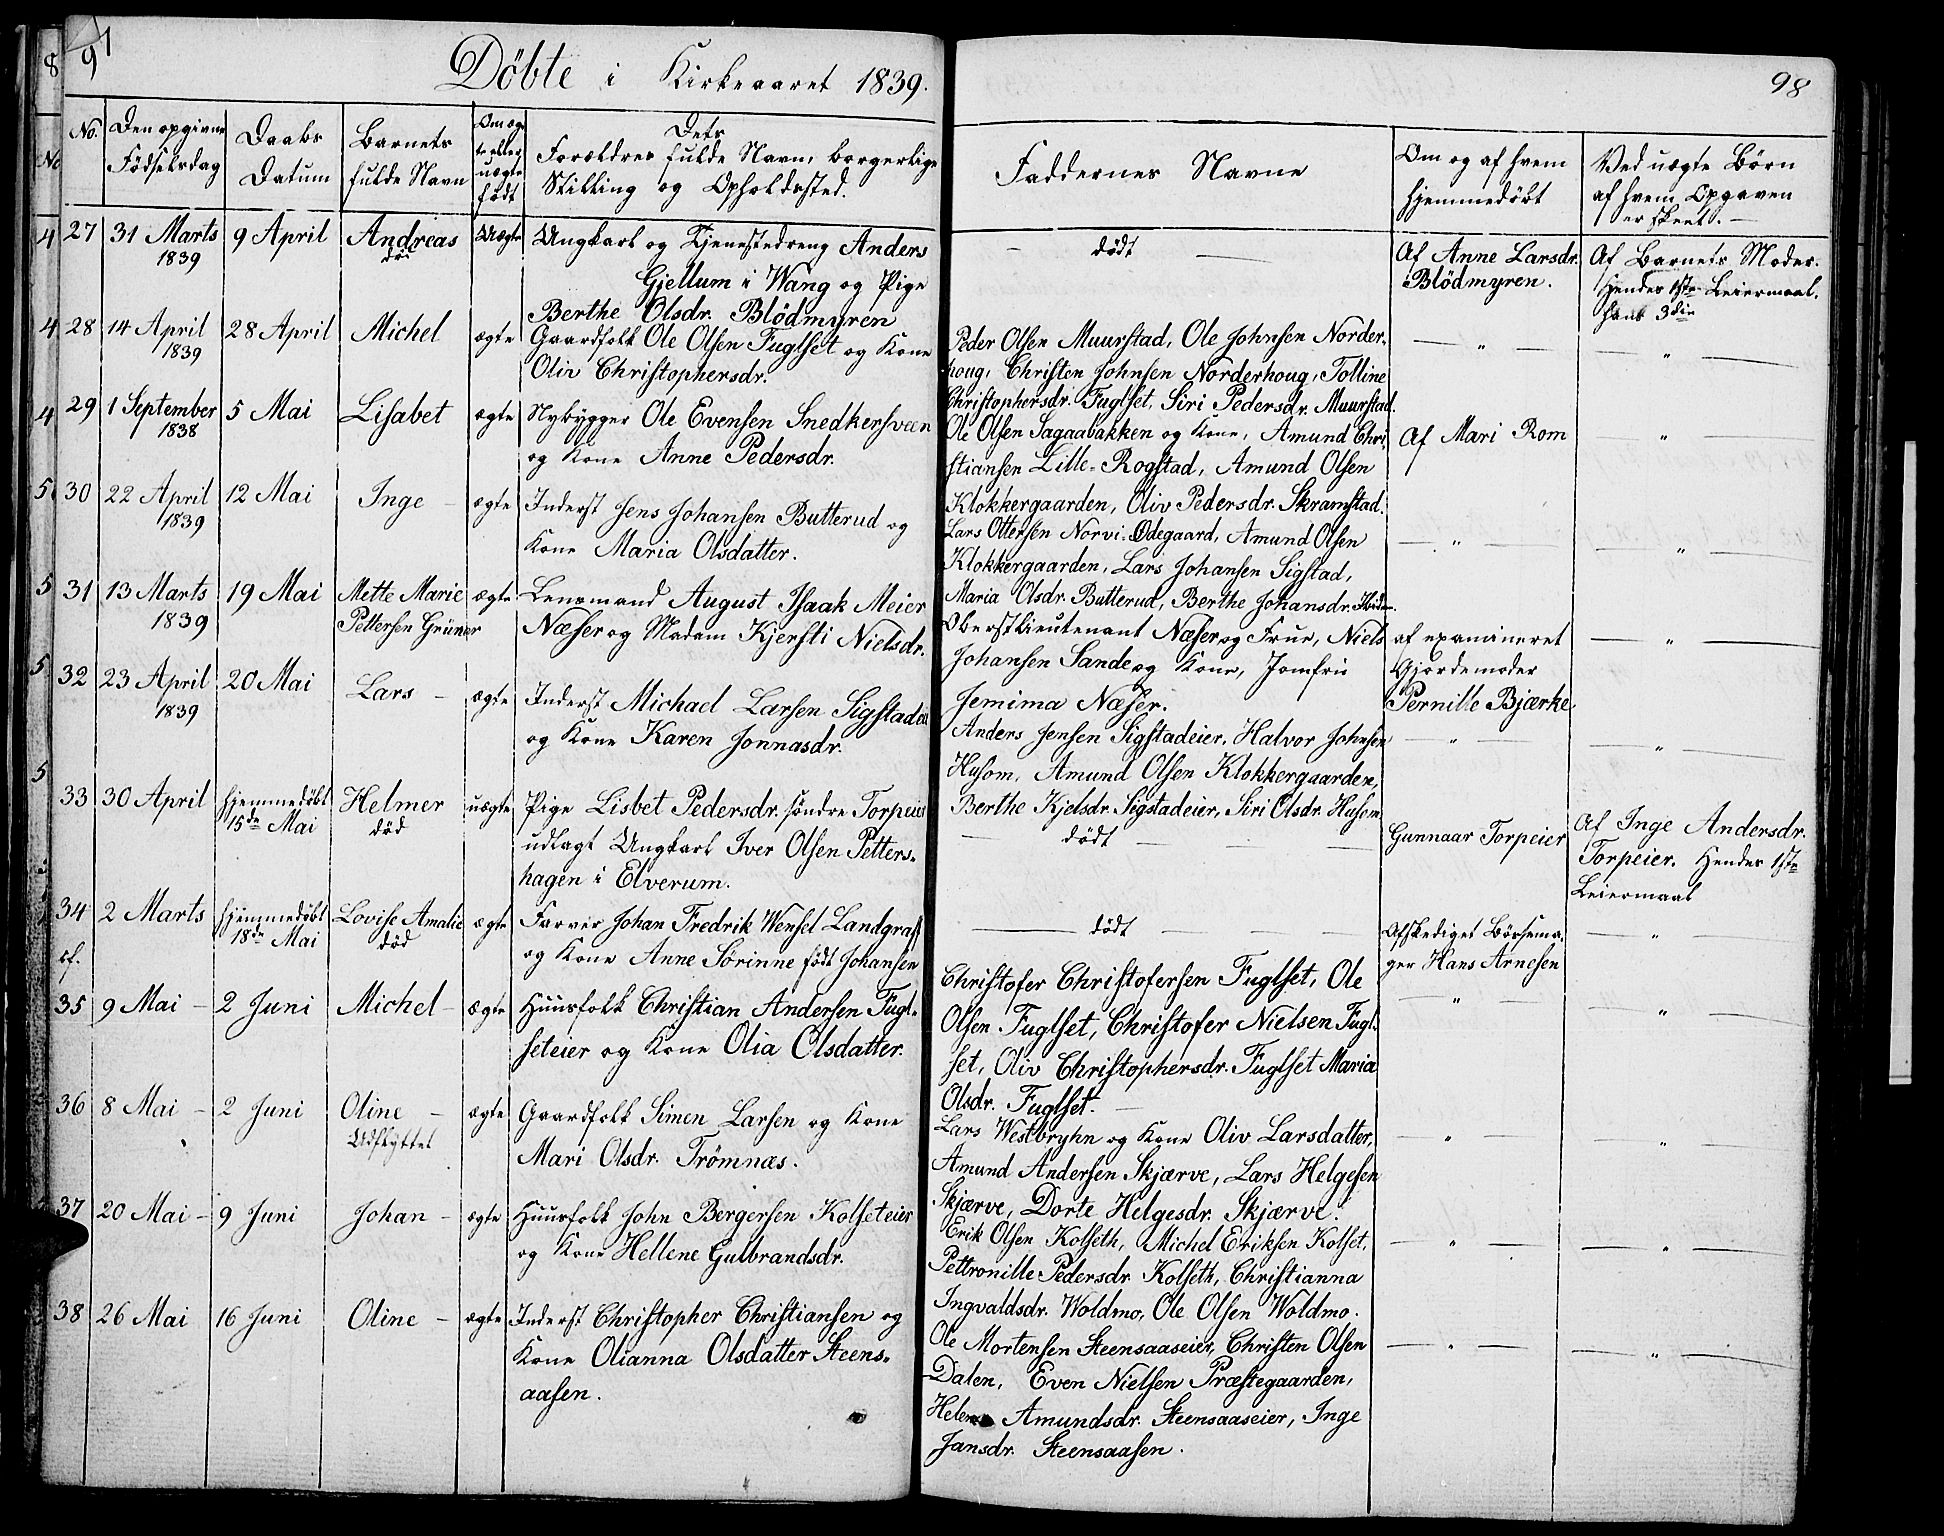 97
Döbte i Kirkeaaret 1839.
No. Den opgivne Födselsdag
Daabs Datum
Barnets fulde Navn
Om ægte eller uægte födt
Dets Forældres fulde Navn, borgerlige Stilling og Opholdssted.
27 31 Marts 1839 9 April Andreas död Uægte Ungkarl og Tjenestedreng Anders
Gjellum i Wang og Pige
Berthe Olsdr. Blödmyren
28 14 April 1839 28 April Michel ægte Gaardfolk Ole Olsen Fuglset og Kone
Oliv Christophersdr.
29 1 September 1838 5 Mai Lisabet ægte Nybygger Ole Evensen Snedkersveen
og Kone Anne Pedersdr.
30 22 April 1839 12 Mai Inge - ægte Inderst Jens Johansen Butterud og
Kone Maria Olsdatter.
31 13 Marts 1839 19 Mai Mette Marie Pettersen Grüner ægte Lensmand August Isaak Meier
Næser og Madam Kjersti Nielsdr.
32 23 April 1839 20 Mai Lars - ægte Inderst Michael Larsen Sigstadei
og Kone Karen Jonnasdr.
33 30 April hjemmedöbt 15de Mai Helmer död uægte Pige Lisbet Pedersdr. söndre Torpeier
udlagt Ungkarl Iver Olsen Petters-
hagen i Elverum.
34 2 Marts hjemmedöbt 18de Mai Lovise Amalie död ægte Farver Johan Fredrik Wensel Landgraff
og Kone Anne Sörinne födt Johansen
cf.
35 9 Mai - 2 Juni Michel - ægte Huusfolk Christian Andersen Fugl-
seteier og Kone Olia Olsdatter.
36 8 Mai - 2 Juni Oline - Udflyttet ægte Gaardfolk Simen Larsen og Kone
Mari Olsdr. Trömnæs.
37 20 Mai - 9 Juni Johan - ægte Huusfolk John Bergersen Kolseteier
og Kone Hellene Gulbrandsdr.
38 26 Mai 16 Juni Oline - ægte Inderst Christopher Christiansen og
Kone Olianna Olsdatter Steens-
aasen.
8
No
4
4
4
5
5
5
5
98
Faddernes Navne
Om og af hvem hjemmedöbt
Ved uægte Börn af hvem Opgaven er skeet. -
- dödt -
Af Anne Larsdr.
Blödmyren.
Af Barnets Moder.
Hendes 1ste Leiermaal.
hans 3die
Peder Olsen Muurstad, Ole Johnsen Norder-
houg, Christen Johnsen Norderhoug, Tolline
Christophersdr. Fuglset, Siri Pedersdr. Muurstad.
Ole Olsen Sagaabakken og Kone, Amund Chri-
stiansen Lille-Rogstad, Amund Olsen
Klokkergaarden, Oliv Pedersdr. Skramstad.
Af Mari Rom
Lars Ottersen Norvi-Ödegaard, Amund Olsen
Klokkergaarden, Lars Johansen Sigstad,
Maria Olsdr. Butterud, Berthe Johansdr.
Oberstlieutenant Næser og Frue, Niels
Johansen Sande og Kone, Jomfru
Jemima Næser.
af examineret
Gjordemoder
Pernille Bjærke.
Anders Jensen Sigstadeier, Halvor Johnsen
Husom, Amund Olsen Klokkergaarden,
Berthe Kjelsdr. Sigstadeier, Siri Olsdr. Husom
- dödt -
Gunnaar Torpeier
Af Inge Andersdr.
Torpeier. Hendes 1ste
Leiermaal
- dödt -
Afskediget Börsema-
ger Hans Arnesen
Christofer Christofersen Fuglset, Ole
Olsen Fuglset, Christofer Nielsen Fugl-
set, Oliv Christophersdr. Fuglset Maria
Olsdr. Fuglset. -
Lars Westbryhn og Kone Oliv Larsdatter,
Amund Andersen Skjærve, Lars Helgesen
Skjærve, Dorte Helgesdr. Skjærve.
Erik Olsen Kolseth, Michel Eriksen Kolset,
Pettronille Pedersdr. Kolseth, Christianna
Ingvaldsdr. Woldmo, Ole Olsen Woldmo.
Ole Mortensen Steensaaseier, Christen Olsen
Dalen, Even Nielsen Præstegaarden,
Helene Amundsdr. Steensaaseier, Inge
Jansdr. Steensaasen.